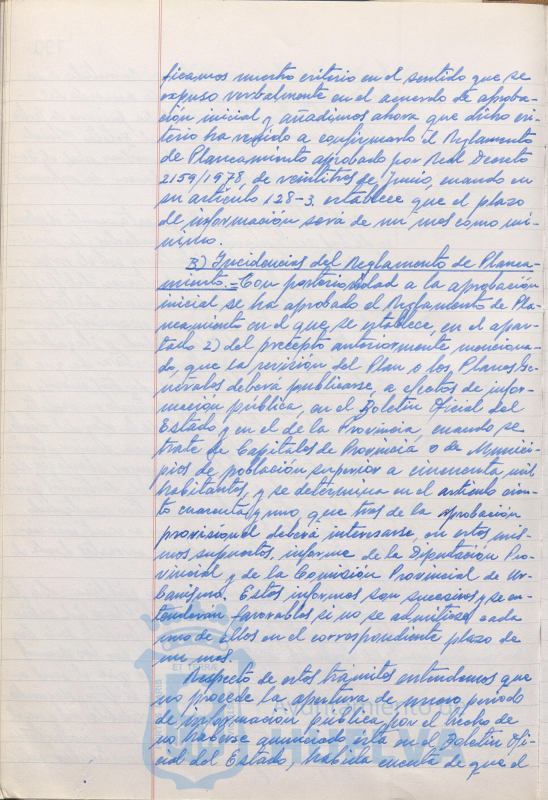 ficamos nuestro criterio en el sentido que se
expuso verbalmente en el acuerdo de aproba-
ción inicial y añadimos ahora que dicho cri-
terio ha venido a confirmarlo el Reglamento
de Planeamiento aprobado por Real Decreto
2159/1978, de veintitres de Junio, cuando en
su artículo 128-3 establece que el plazo
de información será de un mes como mí-
nimo.
B) Incidencias del Reglamento de Planea-
miento.= Con posterioridad a la aprobación
inicial se ha aprobado el Reglamento de Pla-
neamiento en el que se establece, en el apar-
tado 2) del precepto anteriormente menciona-
do, que la revisión del Plan o los Planes Ge-
nerales deberá publicarse, a efectos de infor-
mación pública, en el Boletín Oficial del
Estado y en el de la Provincia, cuando se
trate de Capitales de Provincia o de Munici-
pios de población superior a cincuenta mil
habitantes, y se determina en el artículo cien-
to cuarenta y uno, que tras de la aprobación
provisional deberá interesarse, en estos mis-
mos supuestos, informe de la Diputación Pro-
vincial y de la Comisión Provincial de Ur-
banismo. Estos informes son sucesivos y se en-
tenderan favorables si no se admitiese cada
uno de ellos en el correspondiente plazo de
un mes.
Respecto de estos trámites entendemos que
no procede la apertura de nuevo periodo
de información pública por el hecho de
no haberse anunciado esta en el Boletín Ofi-
cial del Estado, habida cuenta de que el
ET TERRÆ
Ayuntamiento de
HUELVA